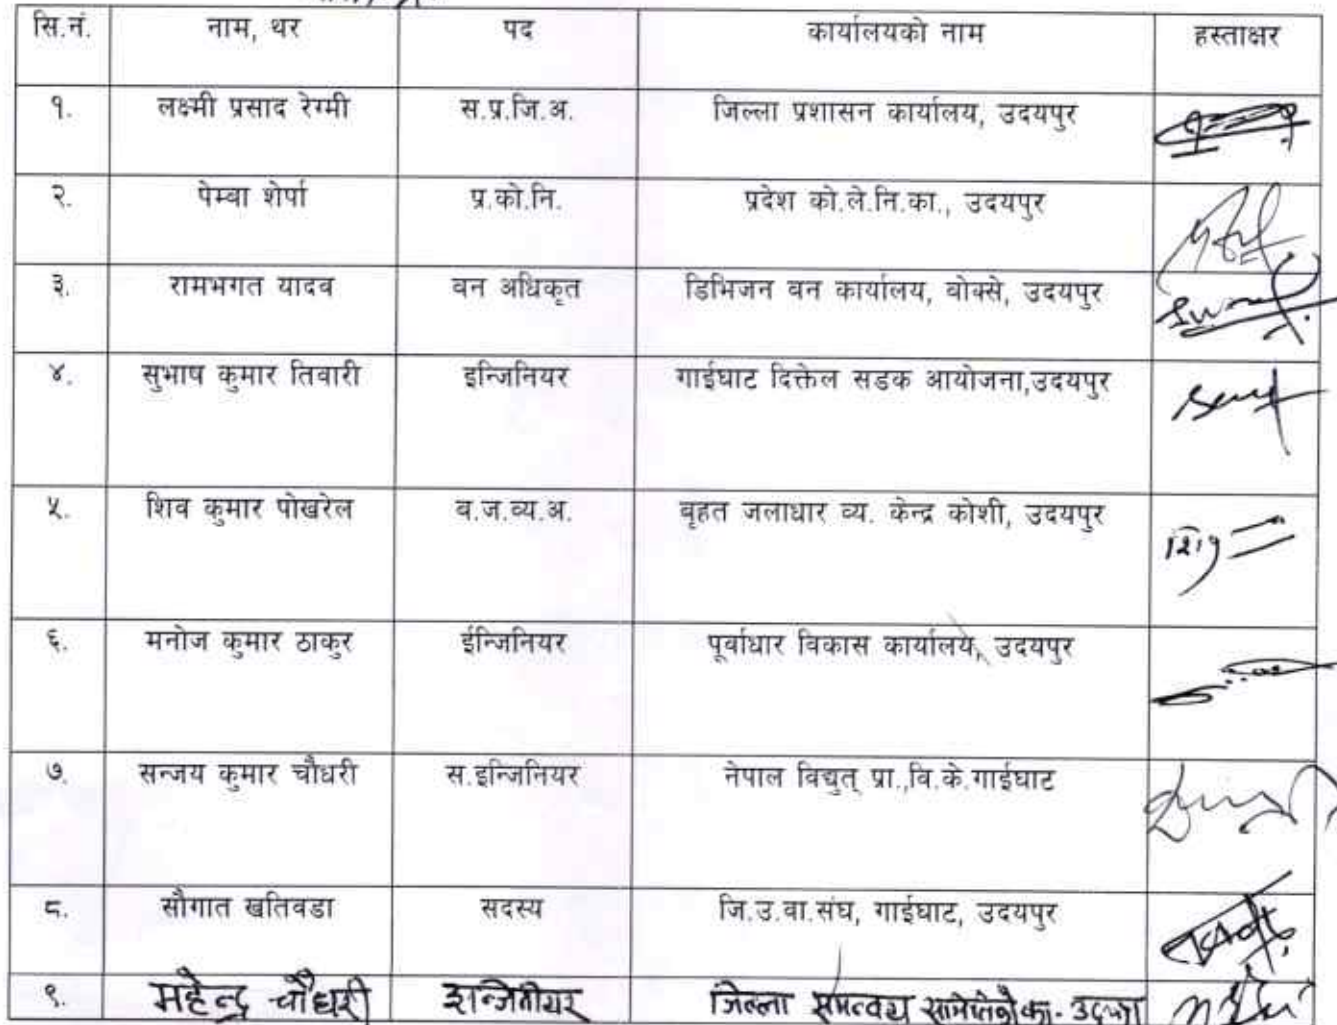 सि.नं. नाम, थर पद कार्यालयको नाम हस्ताक्षर
१. लक्ष्मी प्रसाद रेग्मी स.प्र.जि.अ. जिल्ला प्रशासन कार्यालय, उदयपुर
२. पेम्बा शेर्पा प्र.को.नि. प्रदेश को.ले.नि.का., उदयपुर
३. रामभगत यादव वन अधिकृत डिभिजन वन कार्यालय, बोक्से, उदयपुर
४. सुभाष कुमार तिवारी इन्जिनियर गाईघाट दिक्तेल सडक आयोजना,उदयपुर
५. शिव कुमार पोखरेल ब.ज.व्य.अ. बृहत जलाधार व्य. केन्द्र कोशी, उदयपुर
६. मनोज कुमार ठाकुर ईन्जिनियर पूर्वाधार विकास कार्यालय, उदयपुर
७. सन्जय कुमार चौधरी स.इन्जिनियर नेपाल विद्युत् प्रा.,वि.के.गाईघाट
८. सौगात खतिवडा सदस्य जि.उ.वा.संघ, गाईघाट, उदयपुर
९. महेन्द्र चौधरी इन्जिनीयर जिल्ला समन्वय